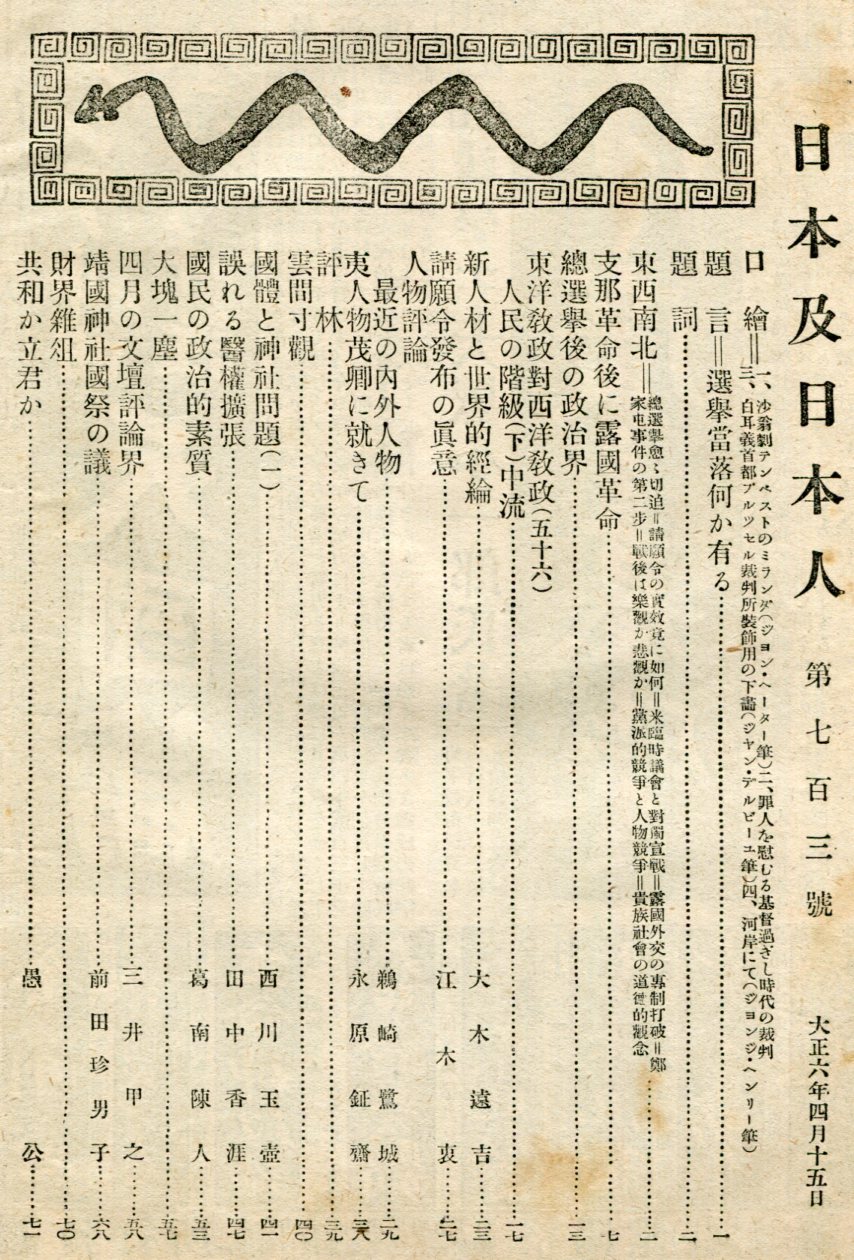 日本及日本人 第七百三號 大正六年四月十五日
口繪‖一、沙翁劇テンペストのミランダ(ジョン・ヘーター筆)二、罪人を慰むる基督過ぎし時代の裁判
三、白耳義首都ブルッセル裁判所裝飾用の下畵(ジャン・デルビーユ筆)四、河岸にて(ジョンジ・ヘンリー筆)
題言‖選擧當落何か有る……一
題詞……二
東西南北‖總選擧愈〻切迫‖請願令の實效竟に如何‖米臨時議會と對獨宣戰‖露國外交の專制打破‖鄭
家屯事件の第二步‖戰後は樂觀か悲觀か‖黨派的競爭と人物競爭‖貴族社會の道德的觀念……二
支那革命後に露國革命……七
總選擧後の政治界……一三
東洋敎政對西洋敎政(五十六)
人民の階級(下)中流……一七
新人材と世界的經綸……大木遠吉……二三
請願令發布の眞意……江木衷……二七
人物評論
最近の內外人物……鵜崎鷺城……二九
夷人物茂卿に就きて……永原鉦齋……三八
評林……三九
雲間寸觀……四〇
國體と神社問題(一)……西川玉壺……四一
誤れる醫權擴張……田中香涯……四七
國民の政治的素質……葛南陳人……五三
大塊一塵……五七
四月の文壇評論界……三井甲之……五八
靖國神社國祭の議……前田珍男子……六八
財界雜俎……七〇
共和か立君か……愚公……七一